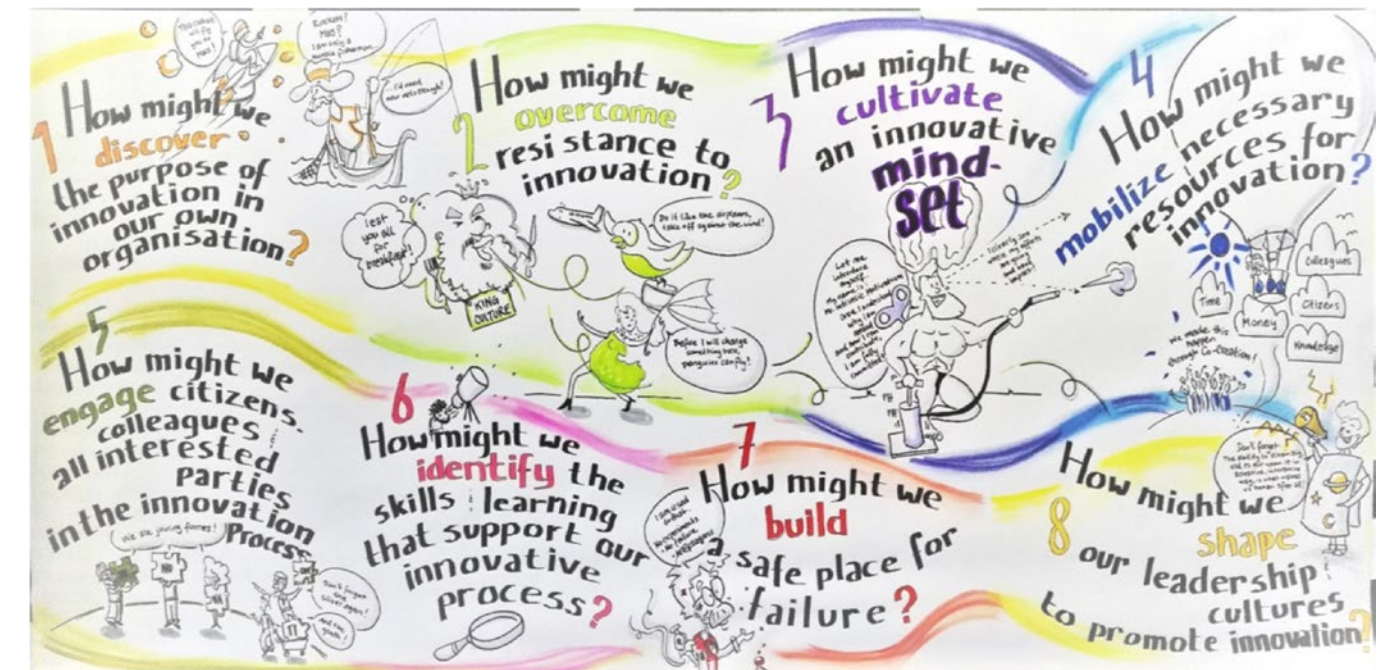 1
How might we
discover
the purpose of
innovation in
our own
organisation?
will fly
you to
Mars!
Rockets?
Mars?
I am only a
fisherman...
...I'd need
new nets though!
2
How might we
overcome
resistance to
innovation?
I eat
you all
for
breakfast!
KING
CULTURE
Do it like the airplanes,
take off against the wind!
Before I will change
something here,
penguins can fly!
3
How might we
cultivate
an innovative
mind-
set
Let me
introduce
myself.
My name is
I clearly see
where my efforts
are going
and have
impact!
4
How might we
mobilize necessary
resources for
innovation?
Colleagues
Time
Citizens
Money
Knowledge
We made this
happen
through Co-creation!
5
How might we
engage citizens,
colleagues &
all interested
parties
in the innovation
Process
We are joining forces!
Don't forget
the
silver agers!
And the
youth!
6
How might we
identify the
skills & learning
that support our
innovative
process?
7
How might we
build
a safe place for
failure?
No experiments
No failure
8
How might we
shape
our leadership &
cultures
to promote innovation?
Don't forget: